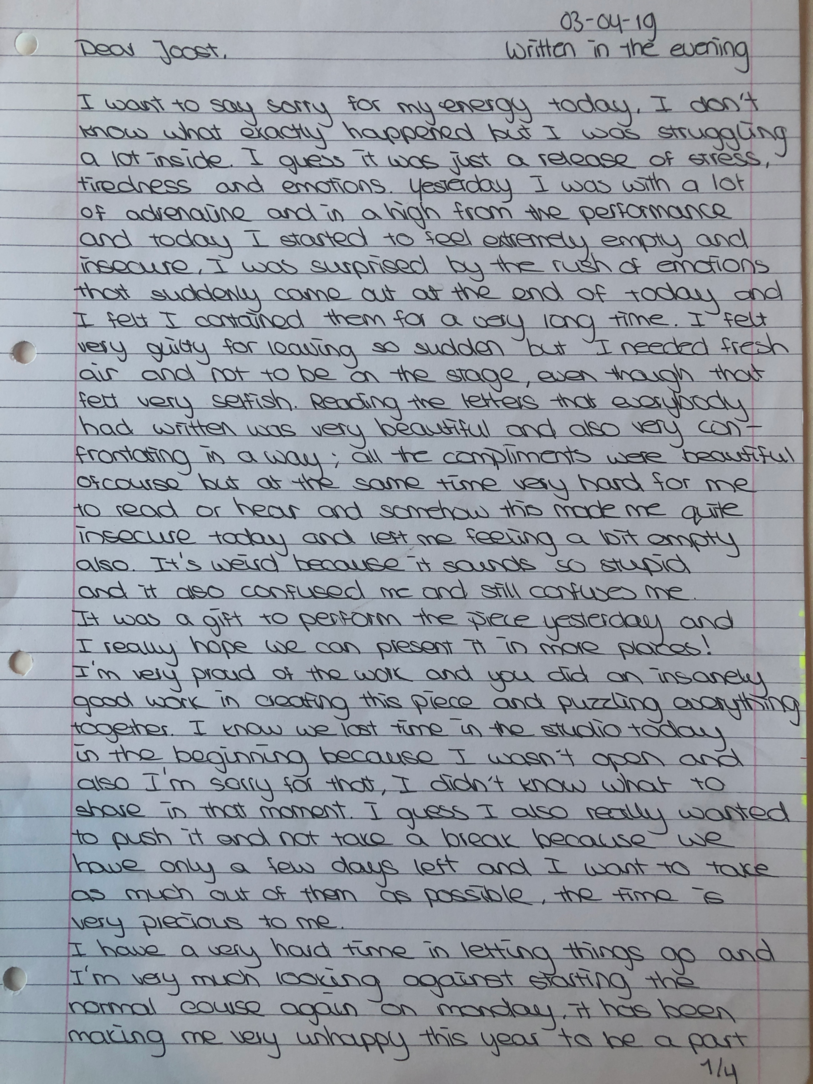 03-04-19
Dear Joost,
Written in the evening
I want to say sorry for my energy today. I don't
know what exactly happened but I was struggling
a lot inside. I guess it was just a release of stress,
tiredness and emotions. Yesterday I was with a lot
of adrenaline and in a high from the performance
and today I started to feel extremely empty and
insecure. I was surprised by the rush of emotions
that suddenly came out at the end of today and
I felt I contained them for a very long time. I felt
very guilty for leaving so sudden but I needed fresh
air and not to be on the stage, even though that
felt very selfish. Reading the letters that everybody
had written was very beautiful and also very con-
frontating in a way; all the compliments were beautiful
ofcourse but at the same time very hard for me
to read or hear and somehow this made me quite
insecure today and left me feeling a bit empty
also. It's weird because it sounds so stupid
and it also confused me and still confuses me.
It was a gift to perform the piece yesterday and
I really hope we can present it in more places!
I'm very proud of the work and you did an insanely
good work in creating this piece and puzzling everything
together. I know we lost time in the studio today
in the beginning because I wasn't open and
also I'm sorry for that, I didn't know what to
share in that moment. I guess I also really wanted
to push it and not take a break because we
have only a few days left and I want to take
as much out of them as possible, the time is
very precious to me.
I have a very hard time in letting things go and
I'm very much looking against starting the
normal course again on monday, it has been
making me very unhappy this year to be a part
1/4